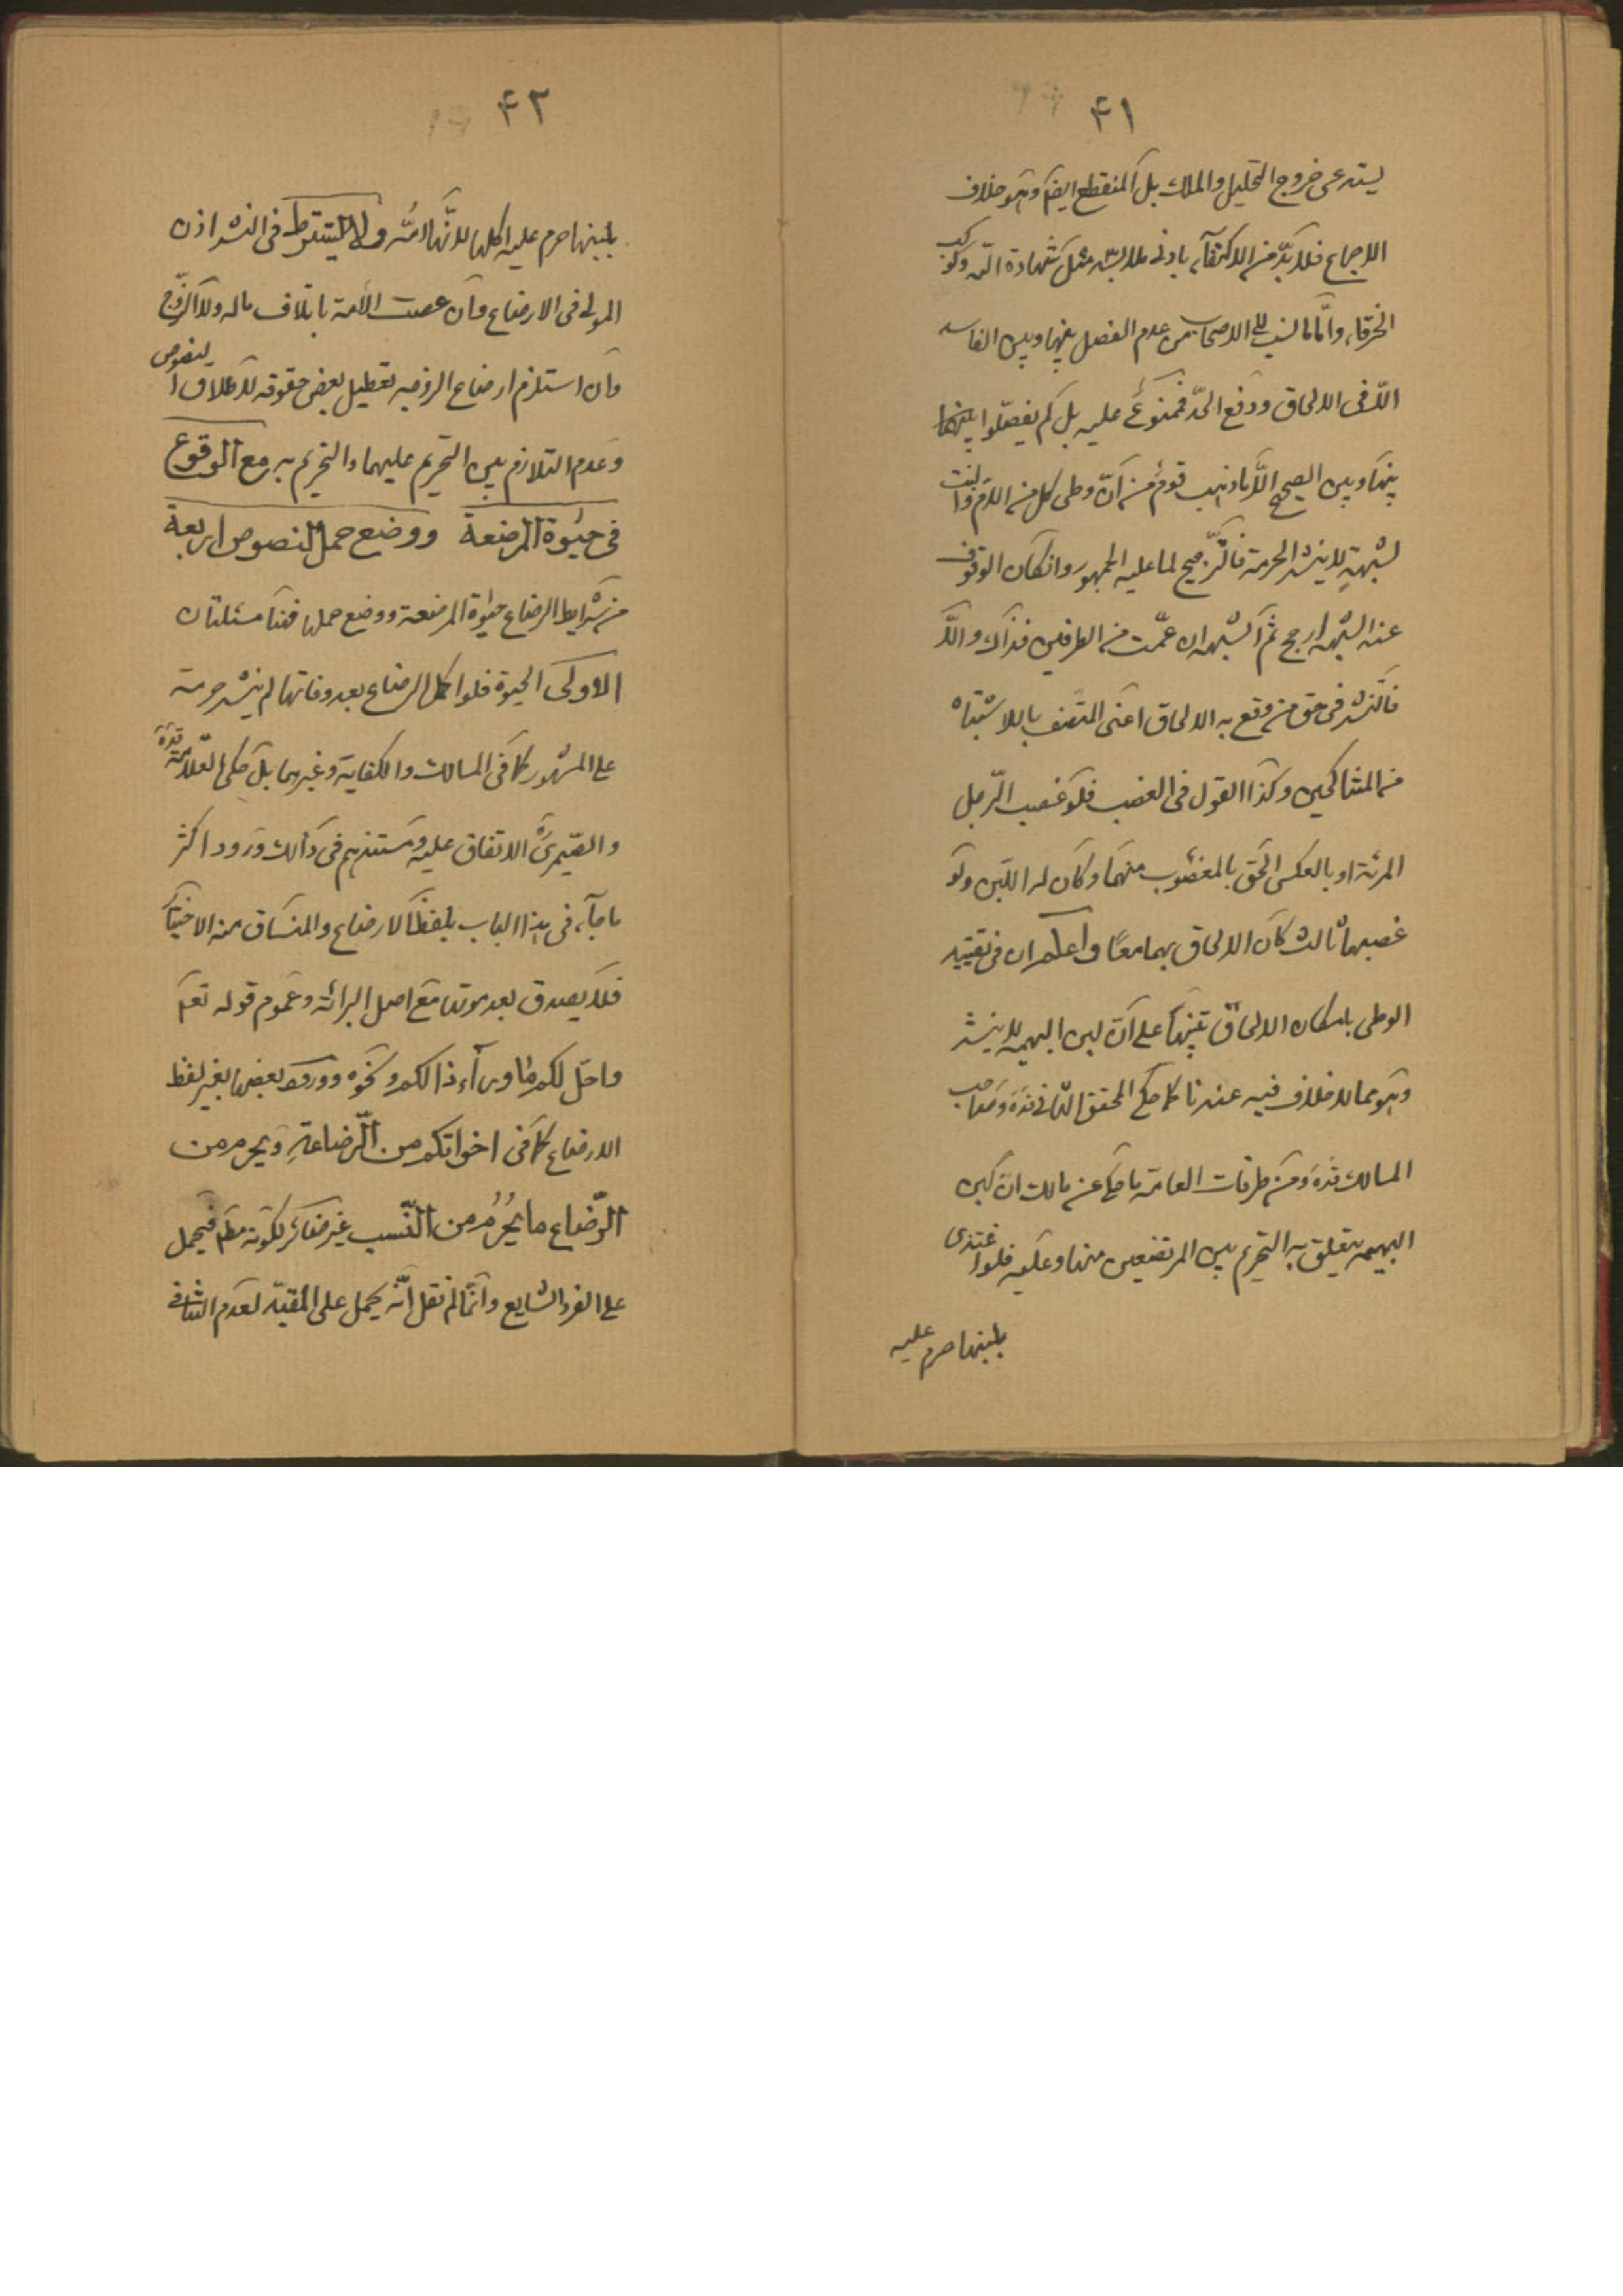 ۴۱
يستدعى خروج التحليل والملك بل المنقطع ايضا وهو خلاف
الاجماع فلا بدّ من الاكتفاء بادنى ملابسة مثل شهادة
الخرقاء وامّا ما نسب الى الاصحاب من عدم الفصل بينها وبين الفاسد
الّا فى الالحاق ودفع الحدّ فممنوع عليه بل لم يفصّلوا
بينها وبين الصحيح الّا ما ذهب قوم من انّ وطى كل من الامّ والبنت
لشبهةٍ لا ينشر الحرمة فالترّجيح لما عليه الجمهور وانكان الوقوف
عند الشبهه ارجح ثم الشبهه ان عمّت من الطرفين فذاك والّا
فالنشر فى حق من وقع به الالحاق اعنى المتصف بالاشتباه
من المتناكحين وكذا القول فى الغصب فلو غصب الرّجل
المرئة او بالعكس الحق بالمغصوب منهما وكان له اللبن ولو
غصبهما ثالث كان الالحاق بهما معًا واعلم ان فى تقييد
الوطى بامكان الالحاق تنبيها على انّ لبن البهيمه لا ينشر
وهو مما لا خلاف فيه عندنا كما حكى المحقق الثانى قده وصاحب
المسالك قده ومن طرقات العامّة ما حكى عن مالك انّ لبن
البهيمه يتعلق به التحريم بين المرتضعين منها وعليه فلو اغتذى
بلبنها حرم عليه
۴۲
بلبنها حرم عليه اكلها لانّها امّه ولا يشترط فى النشر اذن
المولى فى الارضاع وان عصت الأمة باتلاف ماله ولا الزّوج
وان استلزم ارضاع الزوجه تعطيل بعض حقوقه لاطلاق النصوص
وعدم التلازم بين التحريم عليهما والتحريم به مع الوقوع
فى حيوة المرضعة ووضع حمل النصوص اربعة
من شرايط الرضاع حيوة المرضعة ووضع حملها فهنا مسئلتان
الاولى الحيوة فلو اكمل الرضاع بعد وفاتها لم ينشر حرمة
على المشهور كما فى المسالك والكفاية وغيرهما بل حكى العلّامة قده
والصّيمرى ره الاتفاق عليه ومستندهم فى ذالك ورود اكثر
ما جآء فى هذا الباب بلفظ الارضاع والمنساق منه الاختيار
فلا يصدق بعد موتها مع اصل البرائة وعموم قوله تعم
واحلّ لكم ما ورآء ذالكم ونحوه وورود بعضها بغير لفظ
الارضاع كما فى اخواتكم من الرّضاعةِ ويحرم من
الرّضاع ما يحرُمُ من النّسب غير ضائر لكونه مطم فيحمل
على الفرد الشايع وانّما لم نقل انّه يحمل على المقيّد لعدم التنافى